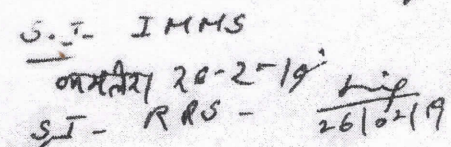 S.I- IMMS
20-2-19
S.I- RRS -
26/02/19